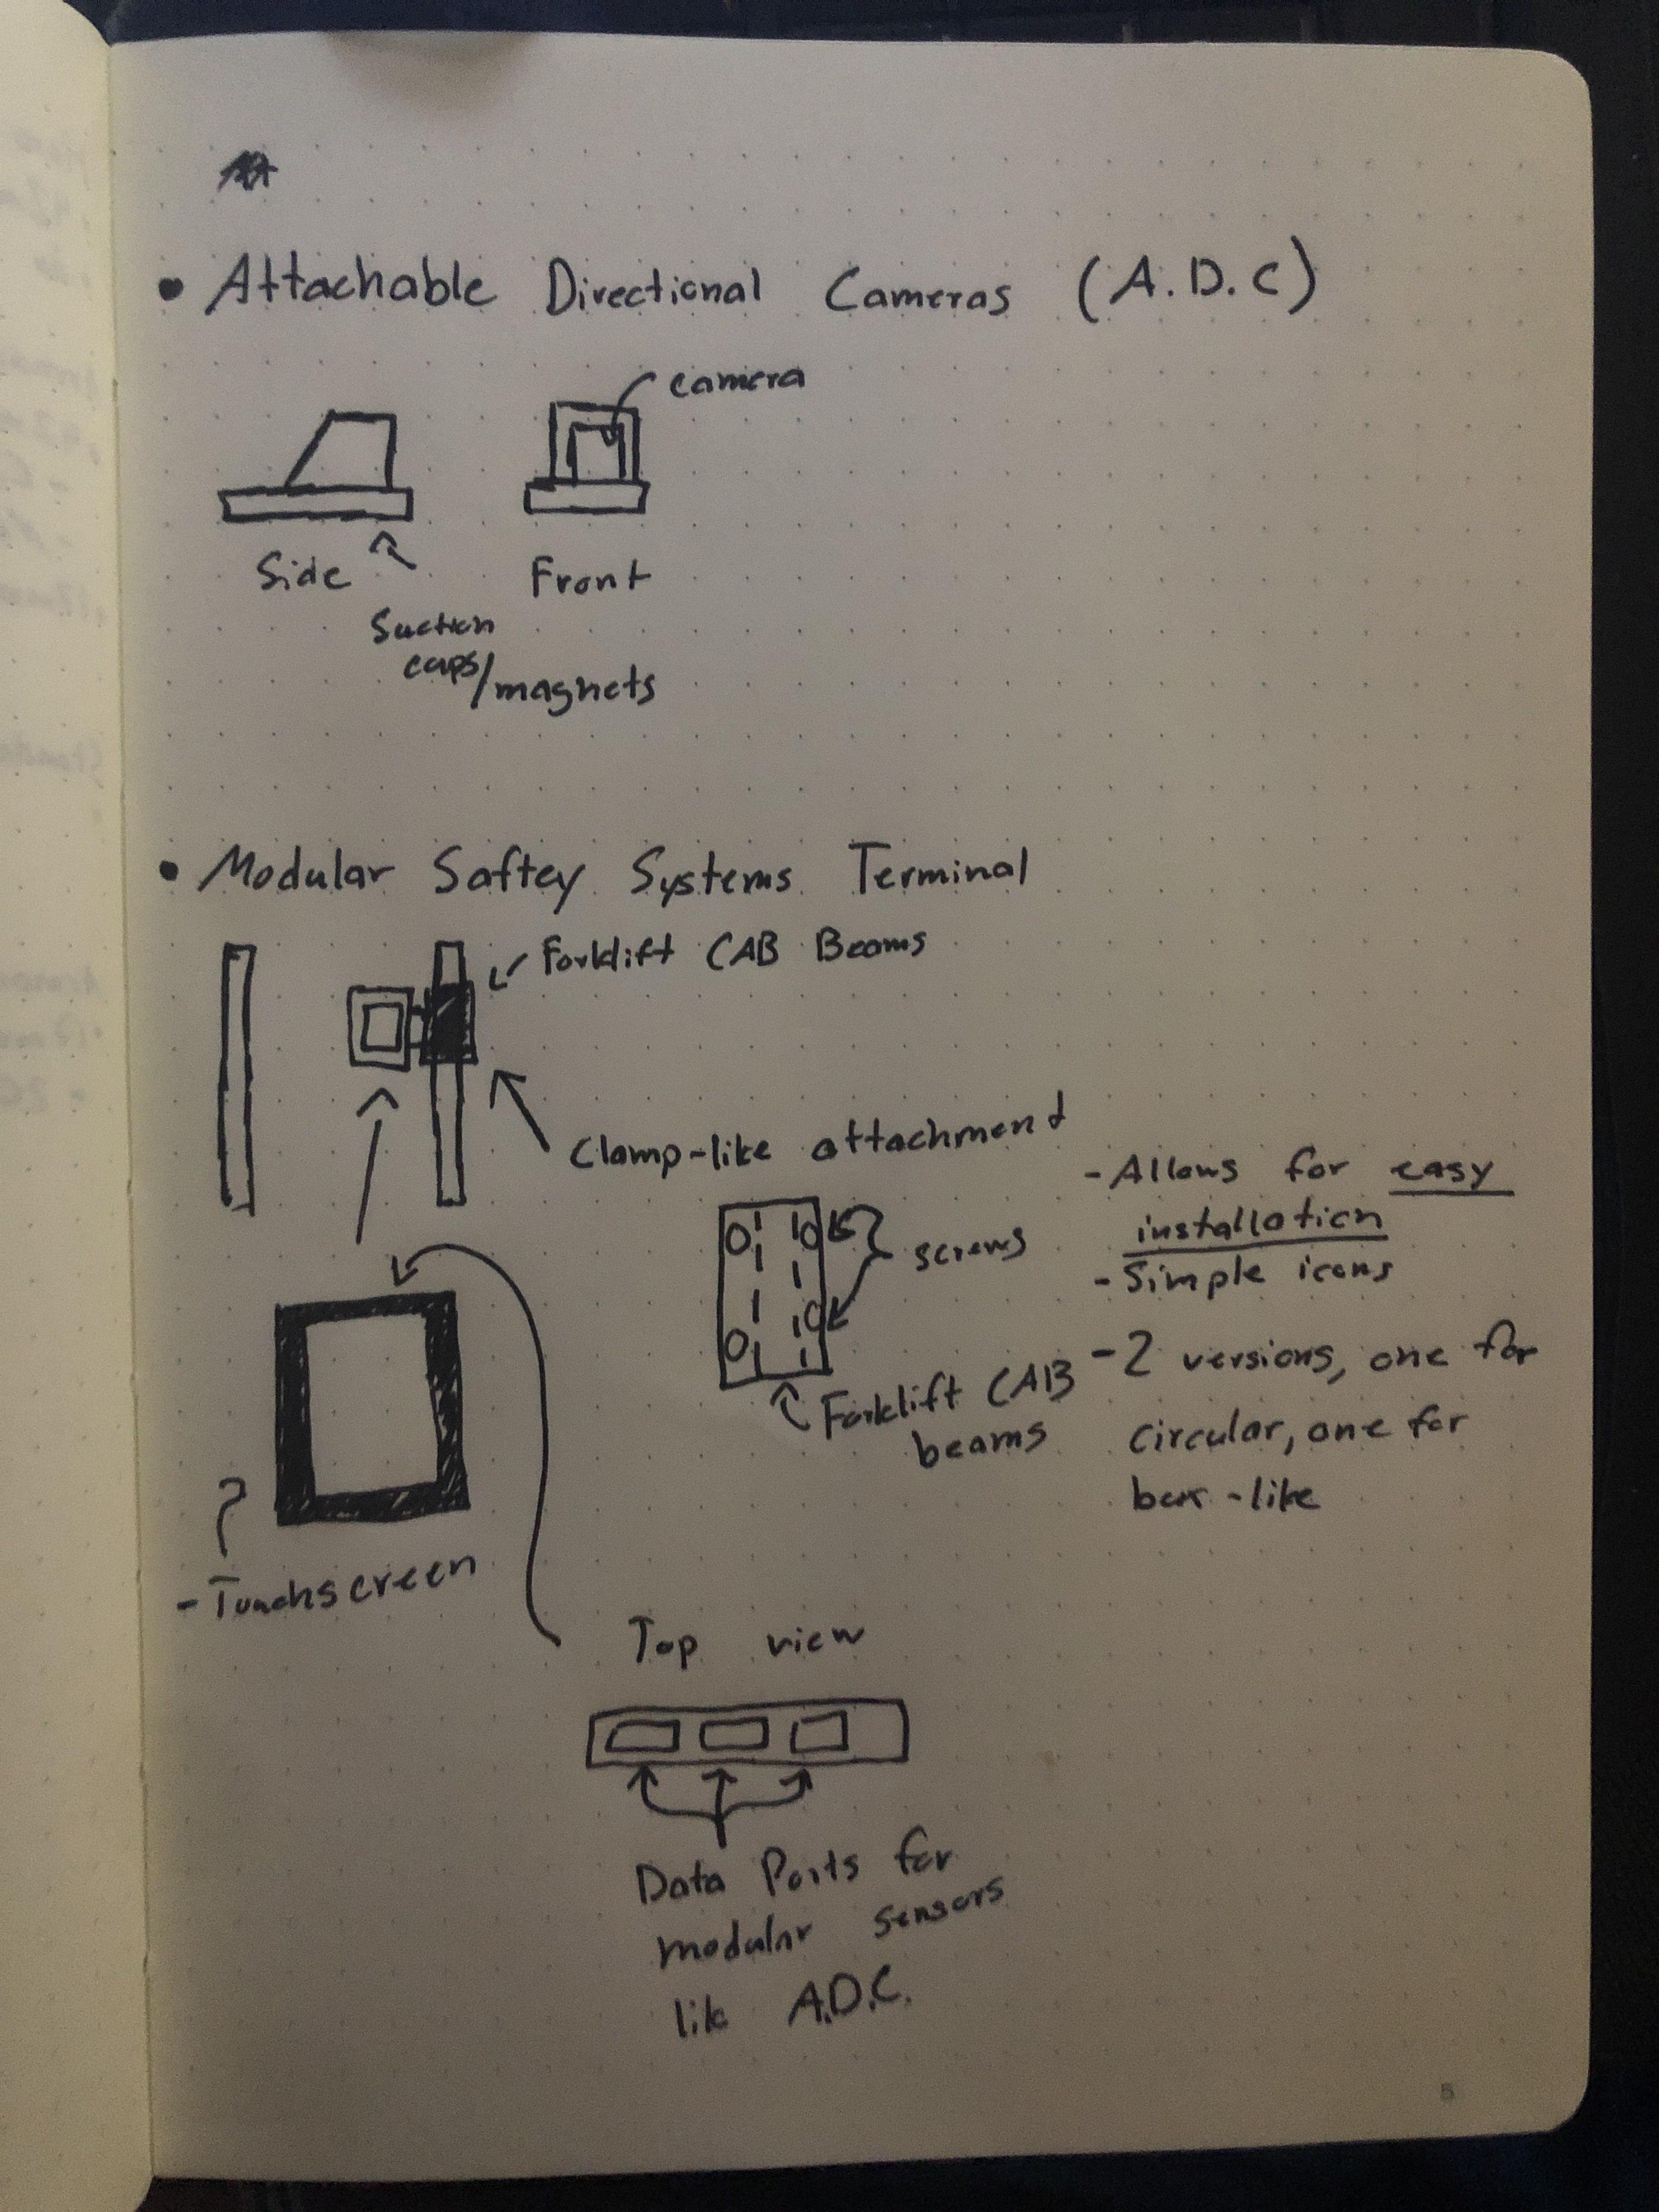 • Attachable Directional Cameras (A.D.C)
camera
Side
Front
Suction
cups/magnets
• Modular Saftey Systems Terminal
Forklift CAB Beams
Clamp-like attachment
- Allows for easy
installation
- Simple icons
- 2 versions, one for
circular, one for
box-like
screws
Forklift CAB
beams
- Touchscreen
Top view
Data Ports for
modular sensors
like A.D.C.
5